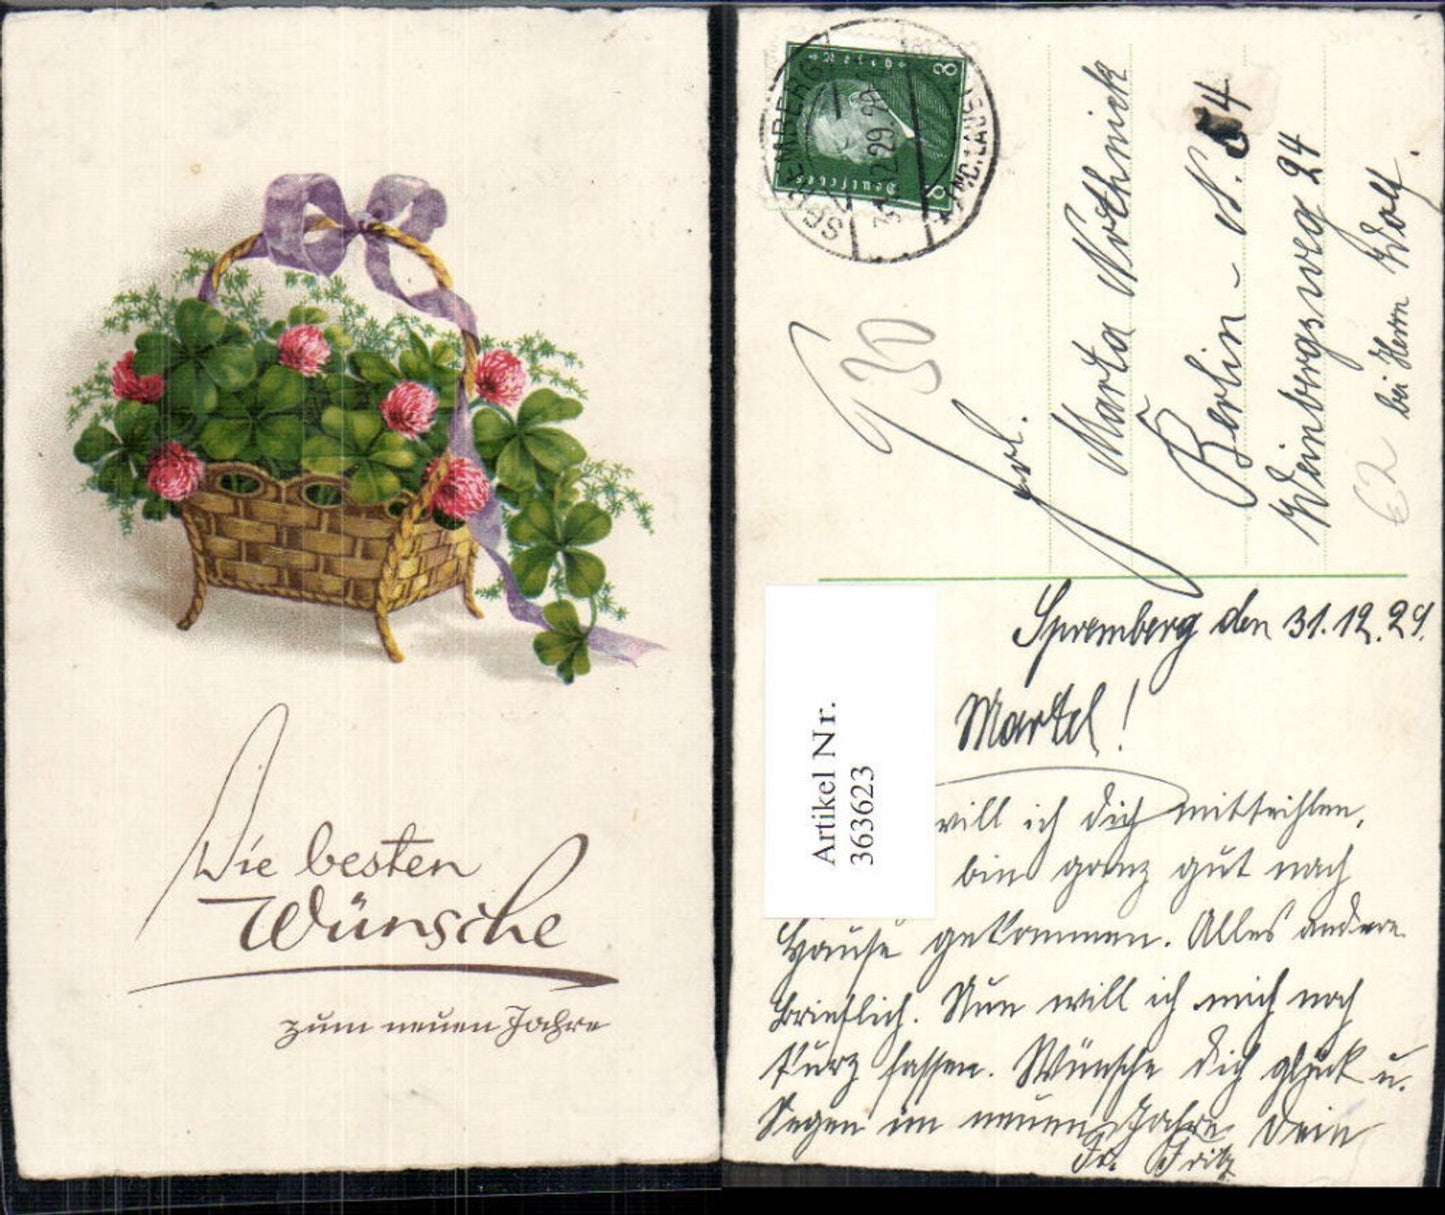 Die besten
Wünsche
zum neuen Jahre
8 8
Deutsches Reich
SPREMBERG
(ND. LAUS
31.12.29
Frl.
Marta Nothnick
Berlin - N. 54
Weinbergsweg 24
bei Herrn Wolf.
62
Artikel Nr.
363623
Spremberg den 31.12.29.
Martel!
will ich dich mitteihlen,
bin ganz gut nach
Hause gekommen. Alles andere
brieflich. Nun will ich mich noch
kurz fassen. Wünsche dich glück u.
Segen im neuen Jahre Dein
Fr. Fritz